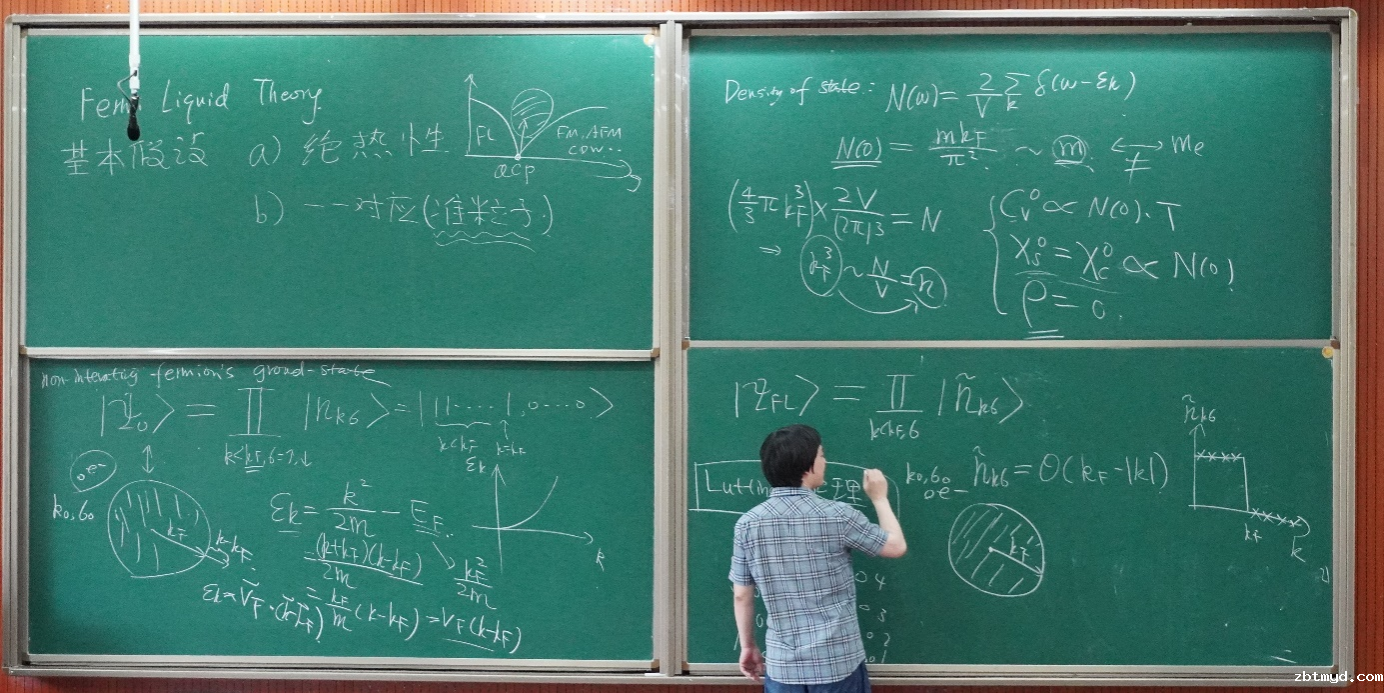 Fermi Liquid Theory
基本假设 a) 绝热性
b) 一一对应(准粒子)
FL
FM, AFM
CDW..
QCP
Density of state: N(ω) = 2/V Σ_k δ(ω-εk)
N(0) = mkF/π² ~ m ≠ me
(4/3 πkF³) × 2V/(2π)³ = N
⇒ kF³ ~ N/V = n
Cv⁰ ∝ N(0)·T
χs⁰ = χc⁰ ∝ N(0)
ρ = 0
non-interating fermion's ground-state
|Ψ0⟩ = Π |nkσ⟩ = |11····1,0···0⟩
k<kF,σ=↑,↓
k<kF k=kF
e-
k0,σ0
kF
k-kF
εk = k²/2m - EF
kF²/2m
= (k+kF)(k-kF)/2m
= kF/m (k-kF) = vF(k-kF)
εk≈vF·(k-kF)
εk
k
|ΨFL⟩ = Π |ñkσ⟩
k<kF,σ
Luttin 理
k0,σ0
e-
ñkσ = Θ(kF-|k|)
kF
ñkσ
kF
k
zbtmyd.com